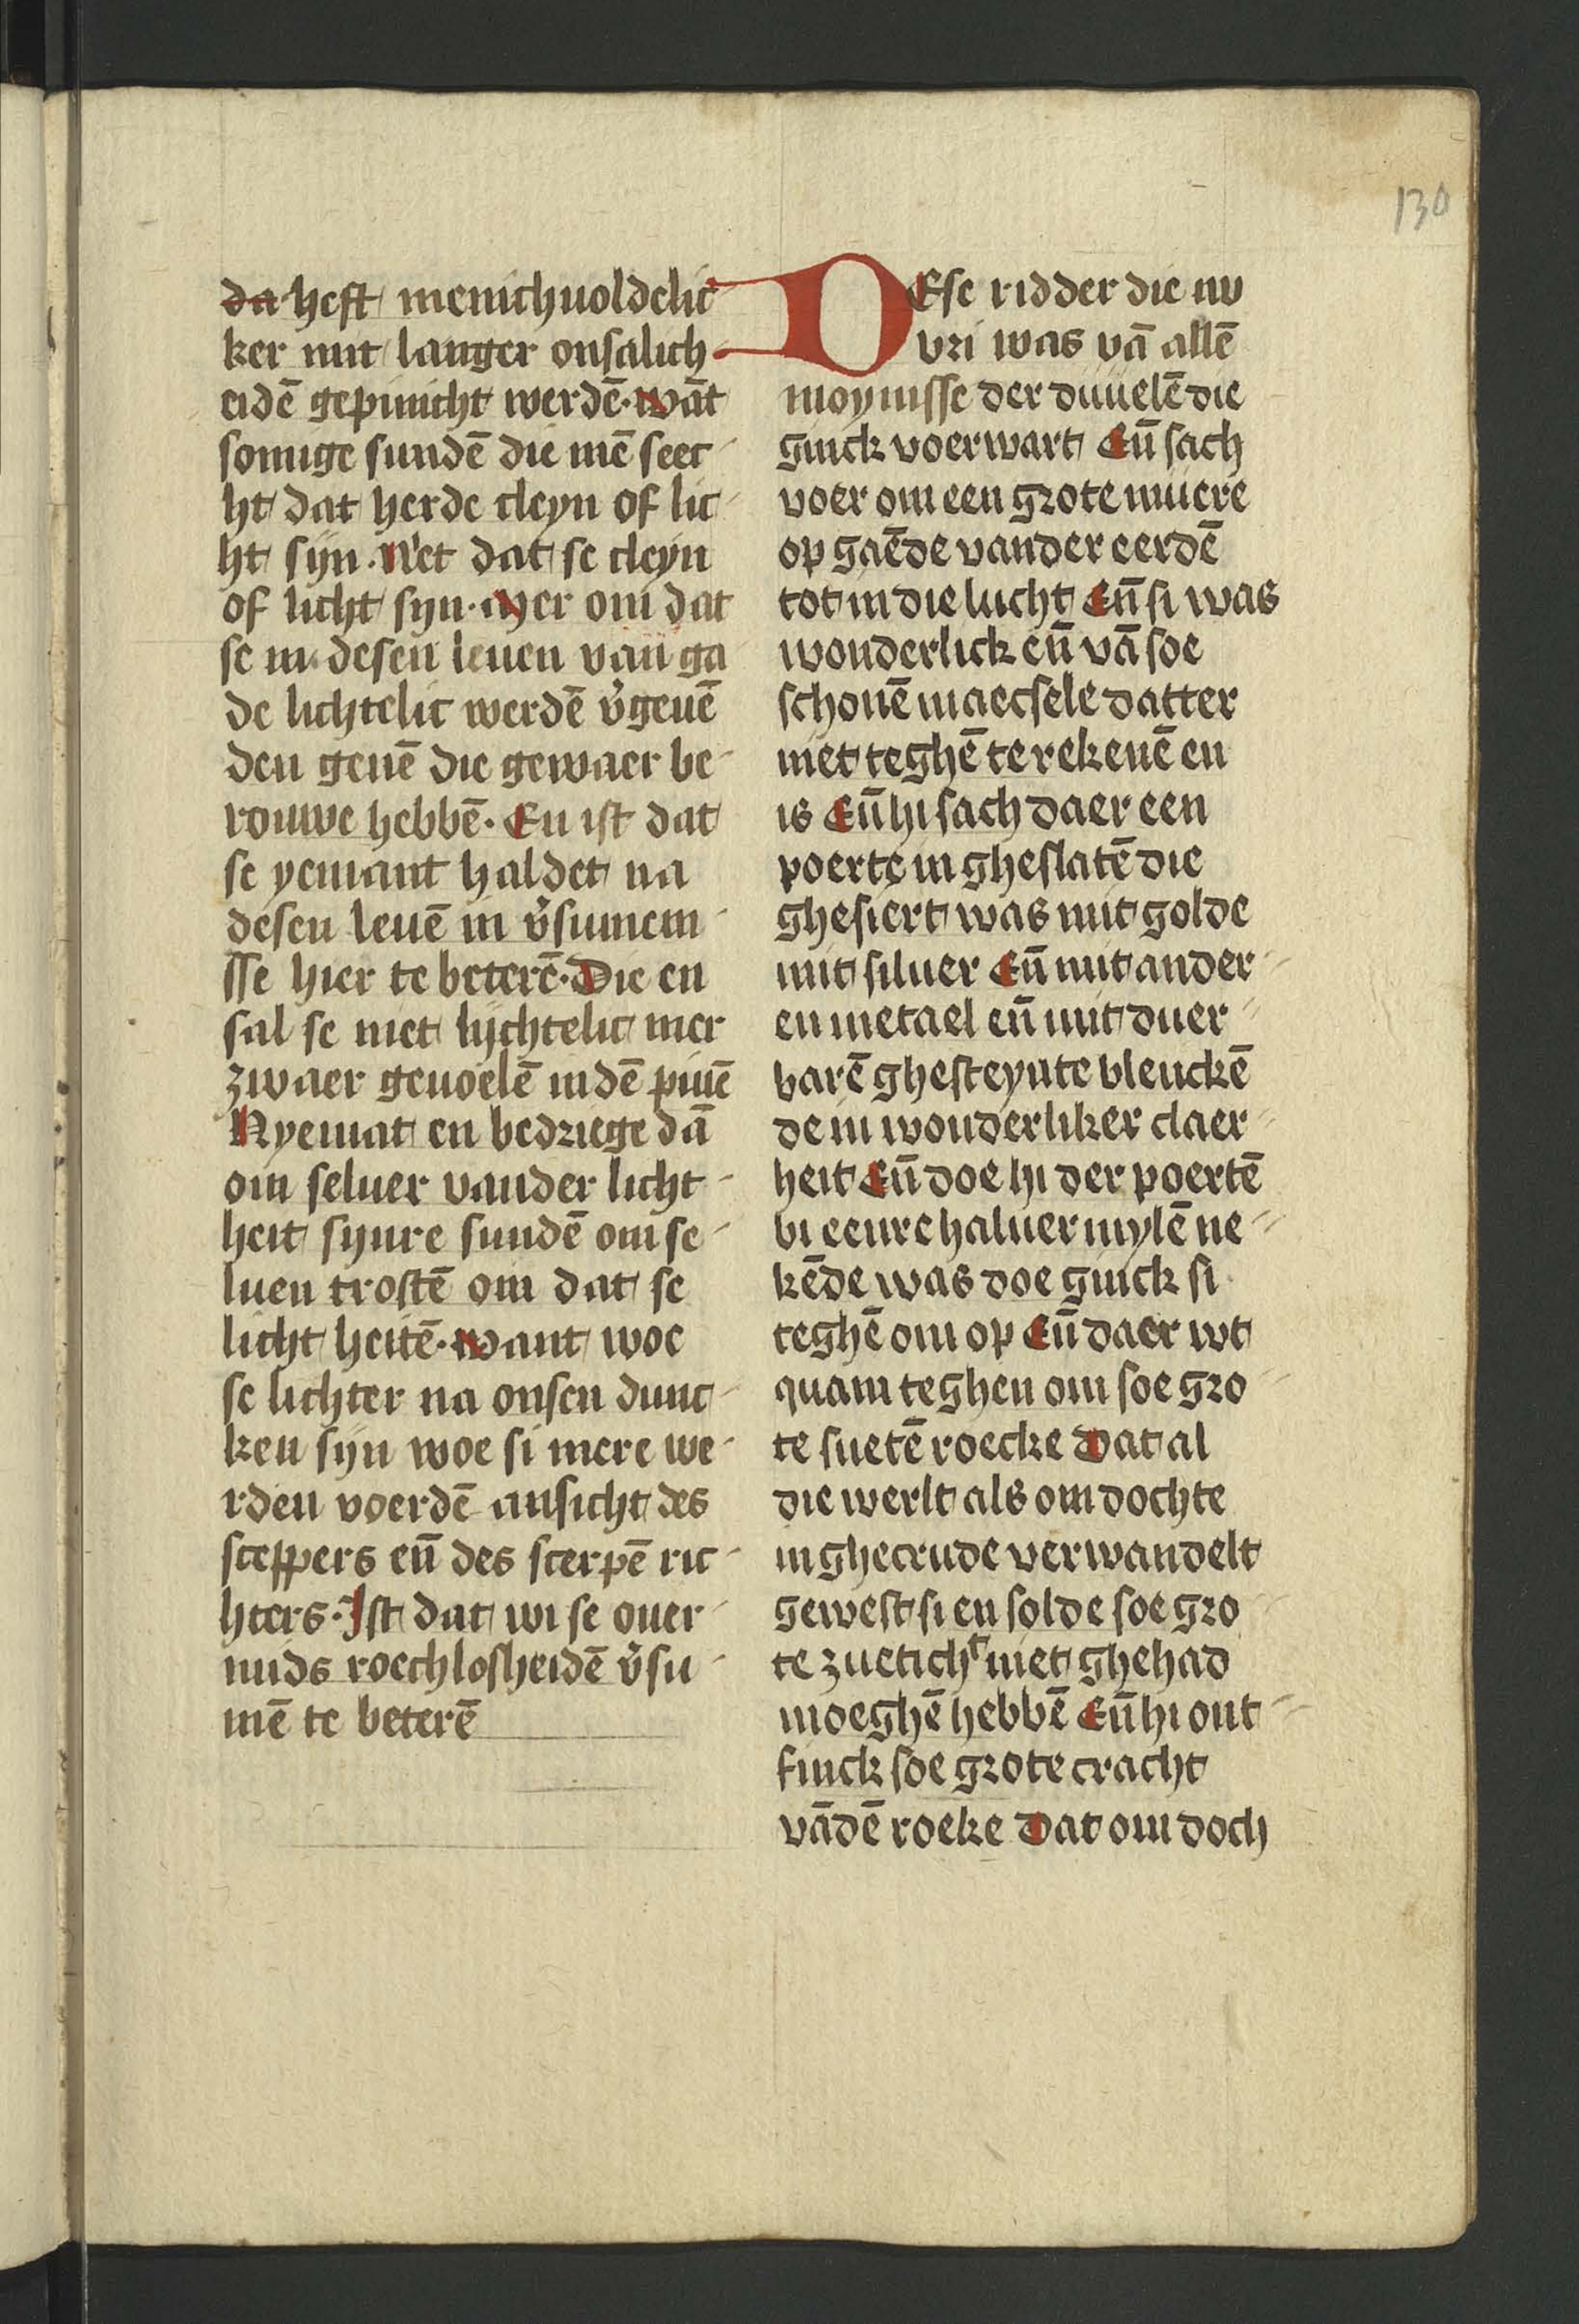 130
da heft menichuoldelic
ker mit langer onsalich
eidē gepinicht werdē. wāt
somige sundē die mē seec
ht dat herde cleyn of lic
ht sijn. Net dat se cleyn
of licht syn. Mer om dat
se in desen leuen van ga
de lichtelic werdē v̄geuē
den genē die gewaer be
rouwe hebbē. En ist dat
se yemant haldet na
desen leuē in v̄sumem
sse hier te beterē. Die en
sal se niet lijchtelic mer
zwaer geuoelē indē pinē
Nyemat en bedriege dā
om seluer vander licht
heit synre sundē om se
luen trostē om dat se
licht heitē. want woe
se lichter na onsen dunc
ken sijn woe si mere we
rden voerdē ansicht des
sceppers eñ des scerpē ric
hters. Ist dat wi se ouer
mids roechlosheidē v̄su
mē te beterē
DEse ridder die nv
vri was vā allē
moynisse der duuelē die
ginck voerwart Eñ sach
voer om een grote muere
op gaēde vander eerdē
tot in die lucht Eñ si was
wonderlick eñ vā soe
schonē maecsele datter
niet teghē te rekenē en
is Eñ hi sach daer een
poerte in gheslatē die
ghesiert was mit golde
mit siluer Eñ mit ander
en metael eñ mit duer
barē ghesteynte blenckē
de in wonderliker claer
heit Eñ doe hi der poertē
bi eenre haluer mylē ne
kēde was doe ginck si
teghē om op Eñ daer wt
quam teghen om soe gro
te suetē roecke Dat al
die werlt als om dochte
in ghecrude verwandelt
gewest si en solde soe gro
te zueticht niet ghehad
moeghē hebbē Eñ hi ont
finck soe grote cracht
vādē roeke Dat om doch